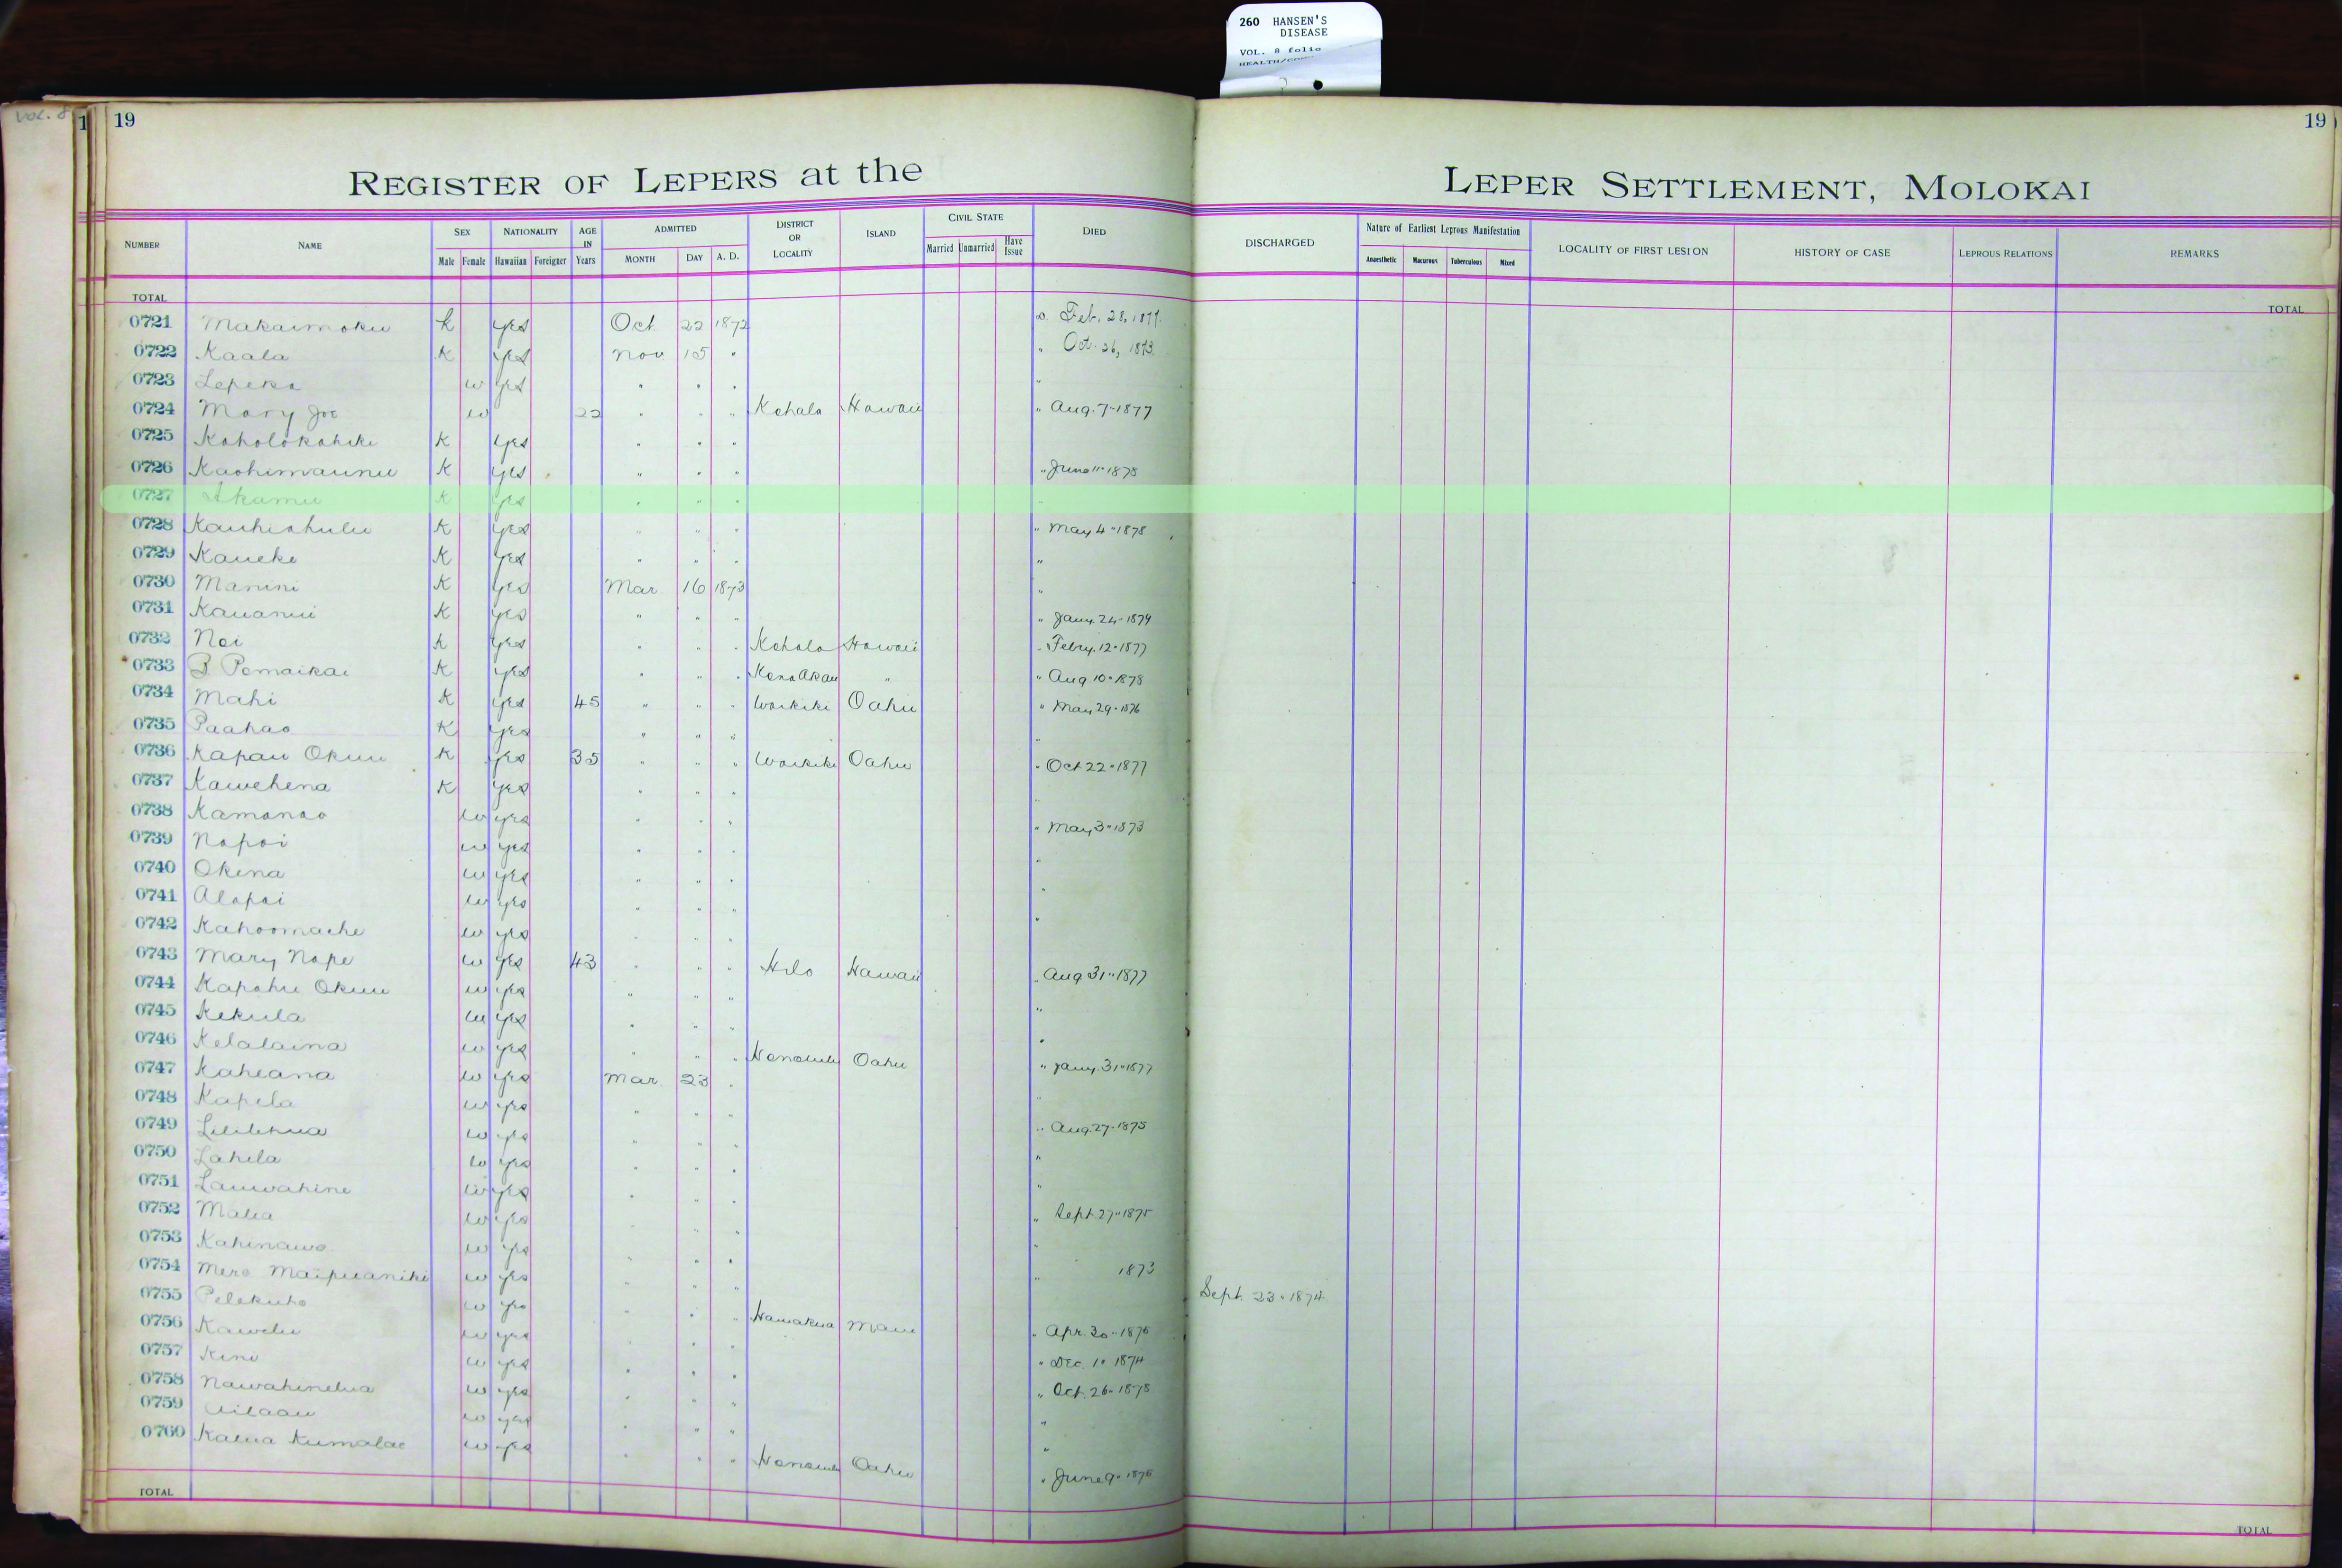 260 HANSEN'S
DISEASE
VOL. 8 folio
VOL. 8
1 19 19
REGISTER OF LEPERS at the LEPER SETTLEMENT, MOLOKAI
NUMBER NAME SEX Male Female NATIONALITY Hawaiian Foreigner AGE IN Years ADMITTED MONTH DAY A. D. DISTRICT OR LOCALITY ISLAND CIVIL STATE Married Unmarried Have Issue DIED DISCHARGED Nature of Earliest Leprous Manifestation Anaesthetic Macurous Tuberculous Mixed LOCALITY OF FIRST LESION HISTORY OF CASE LEPROUS RELATIONS REMARKS
TOTAL TOTAL
0721 Makaimoku K yes Oct 22 1872 Feb. 28, 1877.
0722 Kaala K yes Nov 15 " " Oct. 26, 1873.
0723 Lepeka w yes " " " "
0724 Mary Joe w 22 " " " Kohala Hawaii " Aug. 7 " 1877
0725 Koholokahiki K yes " " "
0726 Kaohimaunu K yes " " " " June 11 " 1878
0727 Akamu K yes " " " "
0728 Kauhiahulu K yes " " " " May 4 " 1878
0729 Kaueke K yes " " " "
0730 Manini K yes Mar 16 1873 "
0731 Kauanui K yes " " " " Jany. 24 " 1879
0732 Noi K yes " " " Kohala Hawaii " Febry. 12 " 1877
0733 B Pomaikai K yes " " " Kona Akau " " Aug 10 " 1878
0734 Mahi K yes 45 " " " Waikiki Oahu " May 29 " 1876
0735 Paahao K yes " " " "
0736 Kapau Okuu K yes 35 " " " Waikiki Oahu " Oct 22 " 1877
0737 Kawehena K yes " " " "
0738 Kamanao w yes " " " " May 3 " 1873
0739 Napoi w yes " " " "
0740 Okina w yes " " " "
0741 Alapai w yes " " " "
0742 Kahoomaehe w yes " " "
0743 Mary Nape w yes 43 " " " Hilo Hawaii " Aug 31 " 1877
0744 Kapahu Okuu w yes " " " "
0745 Kekula w yes " " "
0746 Kelalaina w yes " " " Honolulu Oahu " Jany. 31 " 1877
0747 Kaheana w yes Mar. 23 " "
0748 Kapela w yes " " " " Aug. 27 " 1875
0749 Lililehua w yes " " " "
0750 Lahela w yes " " " "
0751 Lauwahine w yes " " " " Sept. 27 " 1875
0752 Malia w yes " " " "
0753 Kahinawe w yes " " " " 1873
0754 Mere Maipuaniki w yes " " " Sept. 23 " 1874
0755 Pelekuho w yes " " " Hamakua Maui " Apr. 30 " 1876
0756 Kawelu w yes " " " Dec. 1 " 1874
0757 Kini w yes " " " " Oct. 26 " 1878
0758 Nawahinelua w yes " " " "
0759 Ailaau w yes " " " "
0760 Kalua Kumalae w yes " " " Honolulu Oahu " June 9 " 1876
TOTAL TOTAL